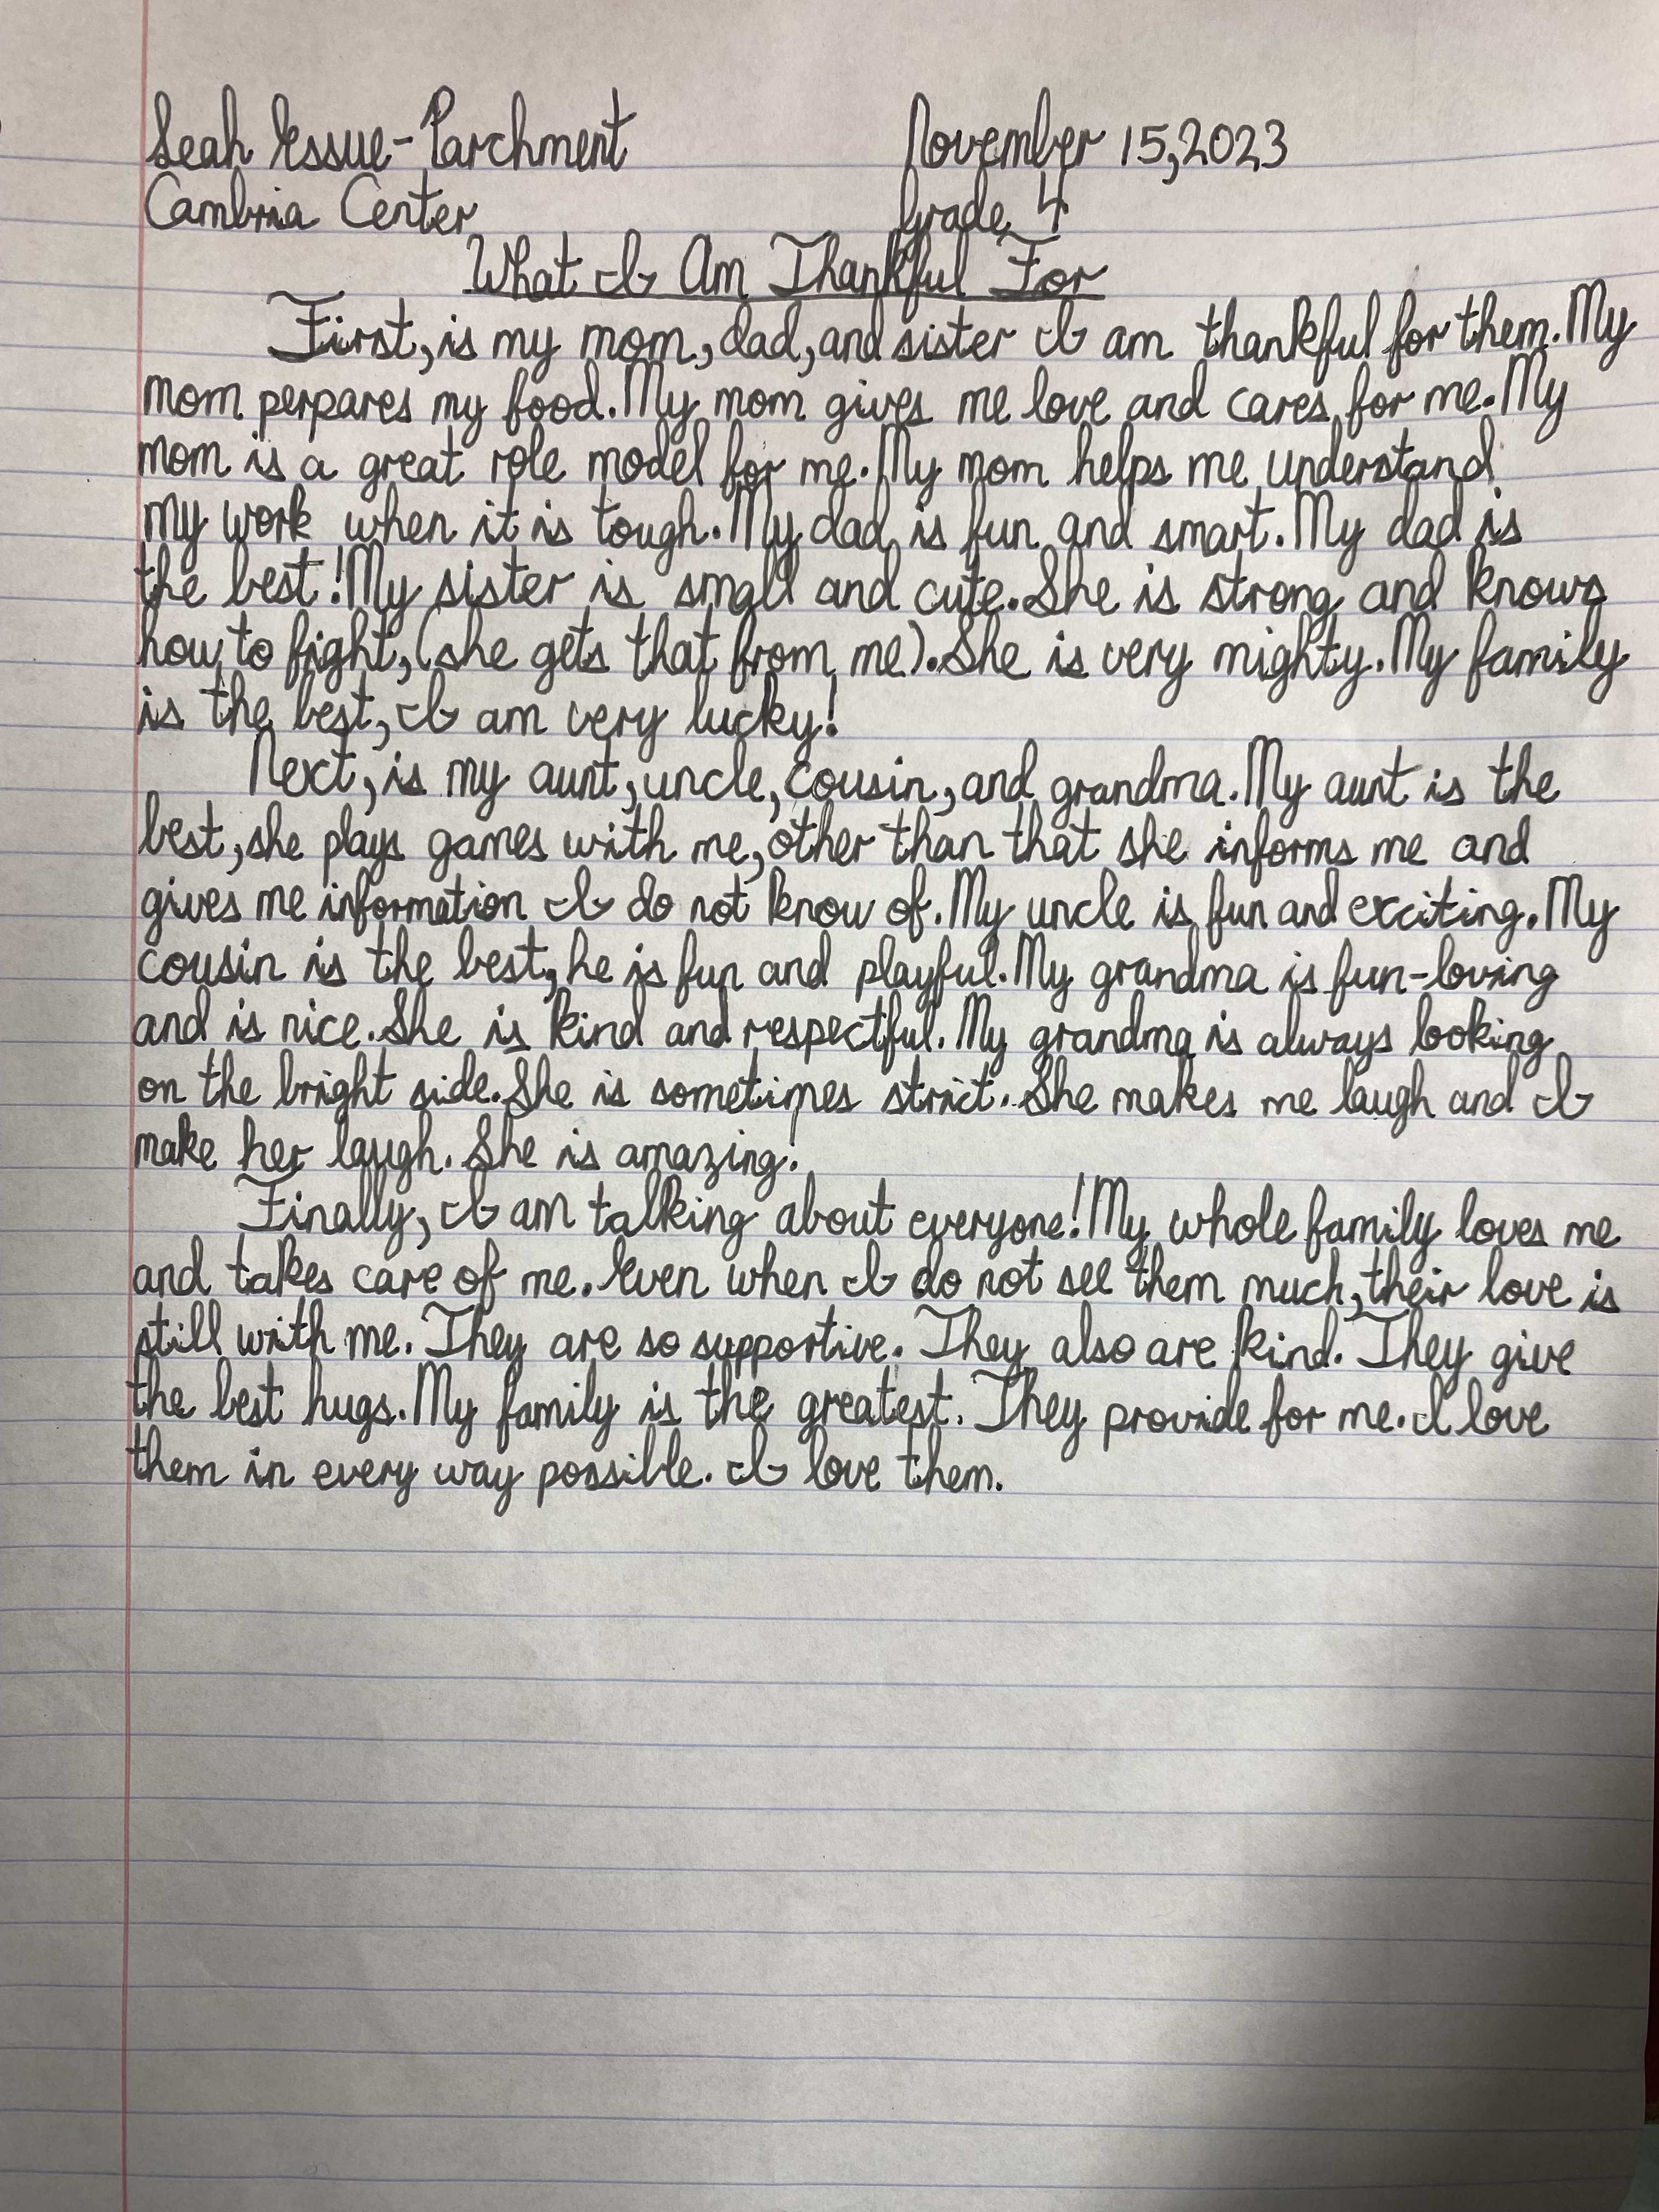 Leah Essue-Parchment November 15,2023
Cambria Center Grade 4
What I Am Thankful For
First, is my mom, dad, and sister I am thankful for them. My
mom perpares my food. My mom gives me love and cares for me. My
mom is a great role model for me. My mom helps me understand
my work when it is tough. My dad is fun and smart. My dad is
the best! My sister is small and cute. She is strong and knows
how to fight, (she gets that from me). She is very mighty. My family
is the best, I am very lucky!
Next, is my aunt, uncle, cousin, and grandma. My aunt is the
best, she plays games with me, other than that she informs me and
gives me information I do not know of. My uncle is fun and exciting. My
cousin is the best, he is fun and playful. My grandma is fun-loving
and is nice. She is kind and respectful. My grandma is always looking
on the bright side. She is sometimes strict. She makes me laugh and I
make her laugh. She is amazing!
Finally, I am talking about everyone! My whole family loves me
and takes care of me. Even when I do not see them much, their love is
still with me. They are so supportive. They also are kind. They give
the best hugs. My family is the greatest. They provide for me. I love
them in every way possible. I love them.